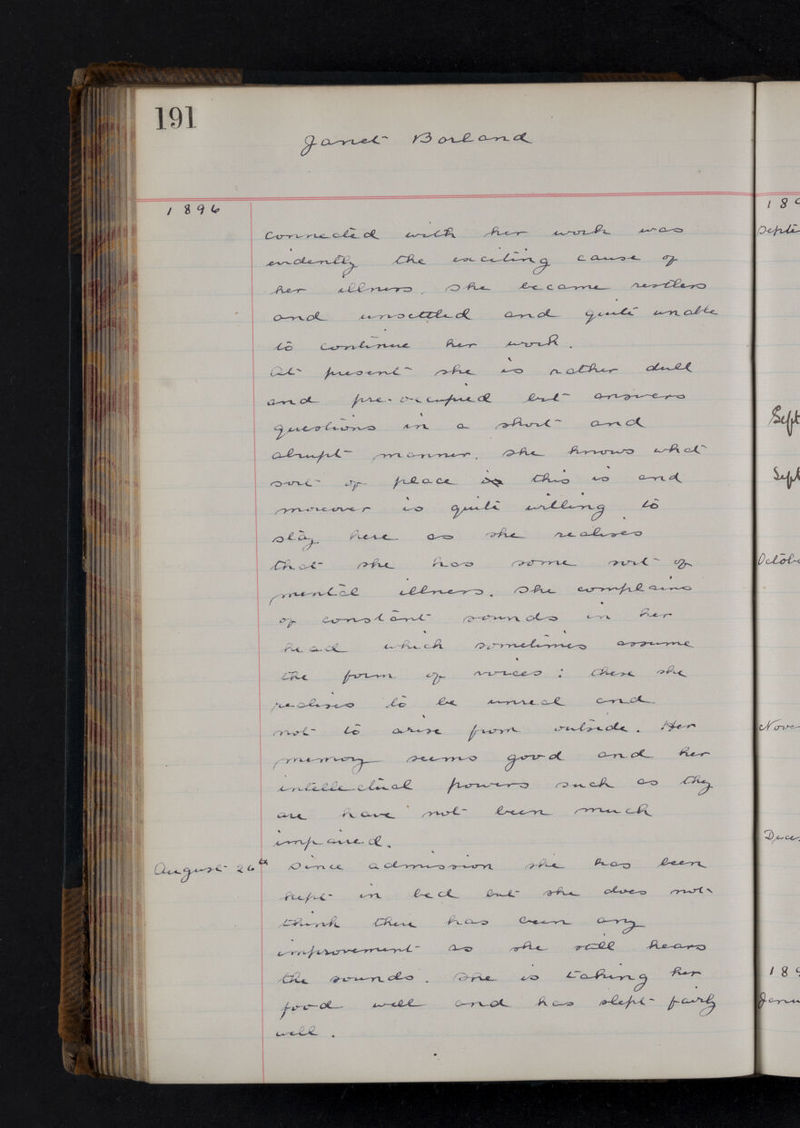 191
Janet Borland
1896
connected with her work was
evidently the exciting cause of
her illness. She became restless
and unsettled and quite unable
to continue her work.
At present she is rather dull
and pre-occupied but answers
questions in a short and
abrupt manner. She knows what
sort of place this is and
moreover is quite willing to
stay here as she realises
that she has some sort of
mental illness. She complains
of constant sounds in her
head which sometimes assume
the form of voices: these she
realises to be unreal and
not to arise from outside. Her
memory seems good and her
intellectual powers such as they
are have not been much
impaired.
August 26th Since admission she has been
kept in bed but she does not
think there has been any
improvement as she still hears
the sounds. She is taking her
food well and has slept fairly
well.
18
Septe
Sept
Sept
Octob
Nove
Dece
18
Janu